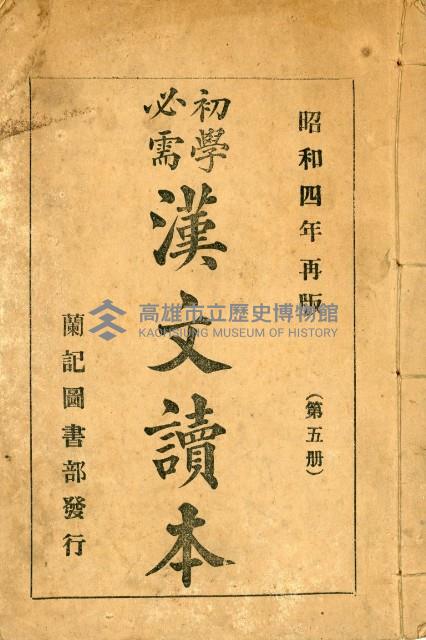 昭和四年再版
(第五册)
初學
必需
漢文讀本
蘭記圖書部發行
高雄市立歷史博物館
KAOHSIUNG MUSEUM OF HISTORY